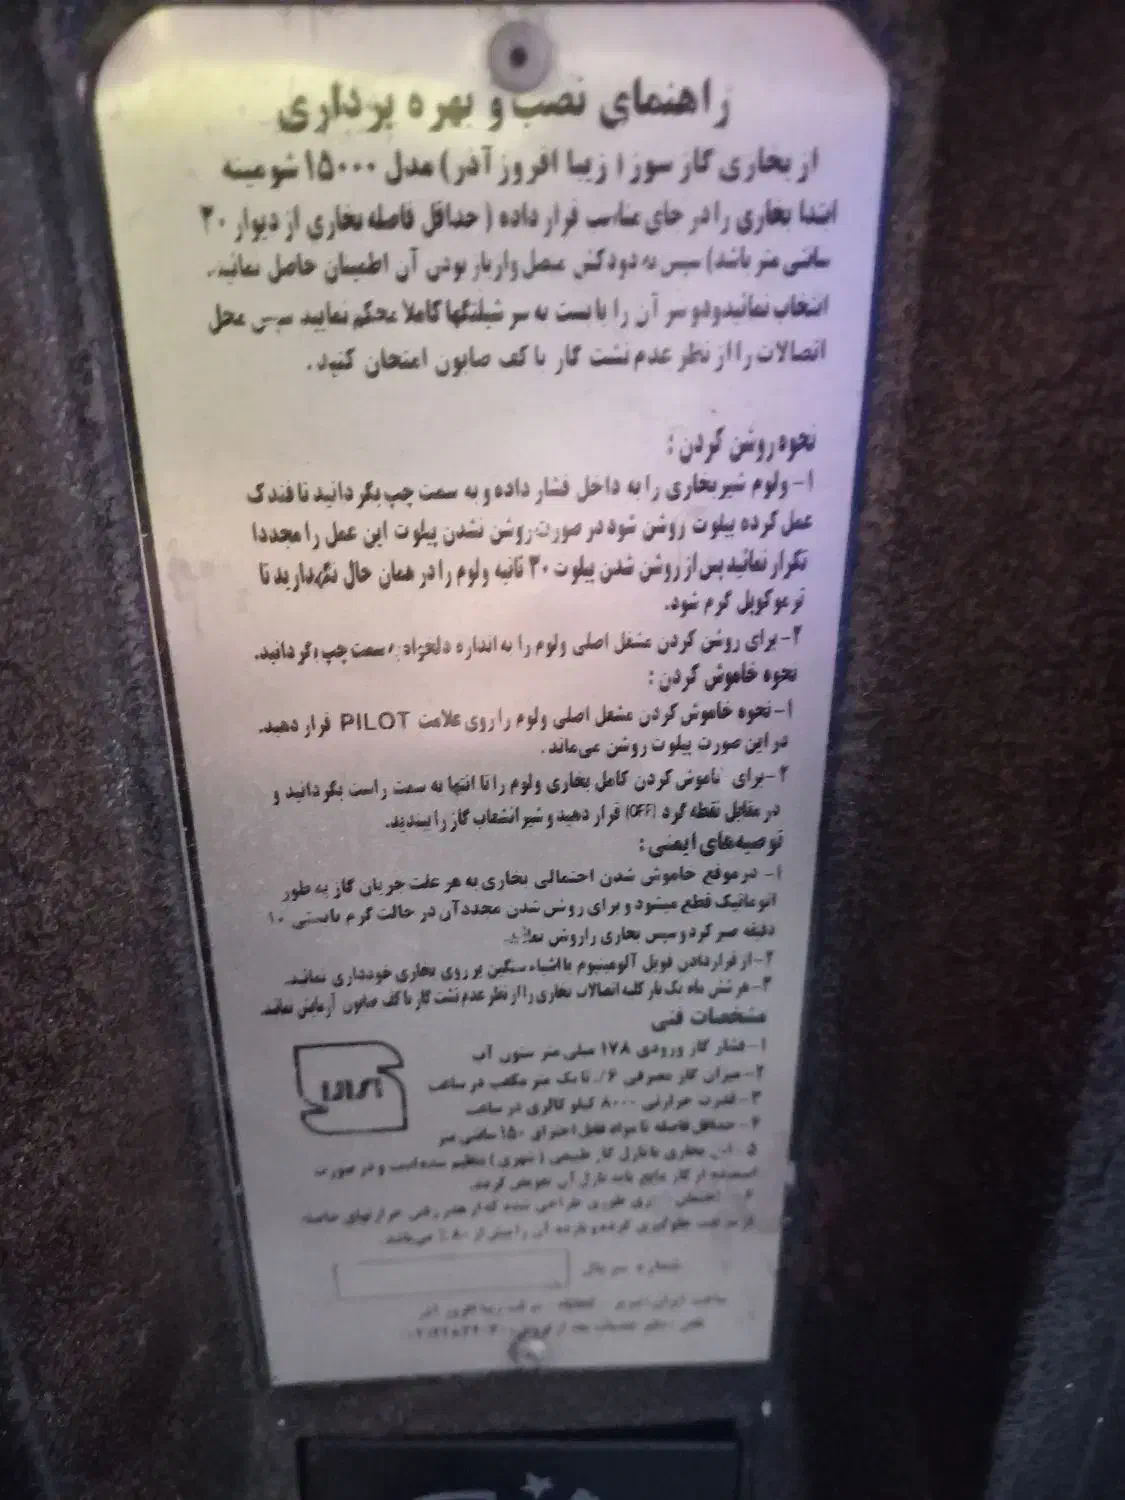 راهنمای نصب و بهره برداری
از بخاری گاز سوز ( زیبا افروز آذر ) مدل ۱۵۰۰۰ شومینه
ابتدا بخاری را در جای مناسب قرار داده ( حداقل فاصله بخاری از دیوار ۳۰
سانتی متر باشد) سپس به دودکش متصل واز باز بودن آن اطمینان حاصل نمائید.
انتخاب نمائیدودو سر آن را با بست به سر شیلنگها کاملا محکم نمایید سپس محل
اتصالات را از نظر عدم نشت گاز با کف صابون امتحان کنید.
نحوه روشن کردن :
۱- ولوم شیربخاری را به داخل فشار داده و به سمت چپ بگردانید تا فندک
عمل کرده پیلوت روشن شود در صورت روشن نشدن پیلوت این عمل را مجددا
تکرار نمائید پس از روشن شدن پیلوت ۳۰ ثانیه ولوم را در همان حال نگهدارید تا
ترموکوپل گرم شود.
۲- برای روشن کردن مشعل اصلی ولوم را به اندازه دلخواه به سمت چپ بگردانید.
نحوه خاموش کردن :
۱- نحوه خاموش کردن مشعل اصلی ولوم را روی علامت PILOT قرار دهید.
در این صورت پیلوت روشن می‌ماند.
۲- برای خاموش کردن کامل بخاری ولوم را تا انتها به سمت راست بگردانید و
در مقابل نقطه گرد (OFF) قرار دهید و شیر انشعاب گاز را ببندید.
توصیه‌های ایمنی :
۱- در موقع خاموش شدن احتمالی بخاری به هر علت جریان گاز به طور
اتوماتیک قطع میشود و برای روشن شدن مجدد آن در حالت گرم بایستی ۱۰
دقیقه صبر کرد و سپس بخاری را روشن نمائید.
۲- از قراردادن فویل آلومینیوم یا اشیاء سنگین بر روی بخاری خودداری نمائید.
۳- هر شش ماه یک بار کلیه اتصالات بخاری را از نظر عدم نشت گاز با کف صابون آزمایش نمائید.
مشخصات فنی
۱- فشار گاز ورودی ۱۷۸ میلی متر ستون آب
۲- میزان گاز مصرفی ۰/۶ تا یک متر مکعب در ساعت
۳- قدرت حرارتی ۸۰۰۰ کیلو کالری در ساعت
۴- حداقل فاصله تا مواد قابل احتراق ۱۵۰ سانتی متر
۵- این بخاری با نازل گاز طبیعی ( شهری ) تنظیم شده است و در صورت
استفاده از گاز مایع باید نازل آن تعویض گردد.
طوری طراحی شده که از هدر رفتن حرارتهای حاصله
جلوگیری کرده و بازده آن را بیش از ۸۰٪ می‌باشد.
شماره سریال
ساخت ایران تبریز شرکت زیبا افروز آذر